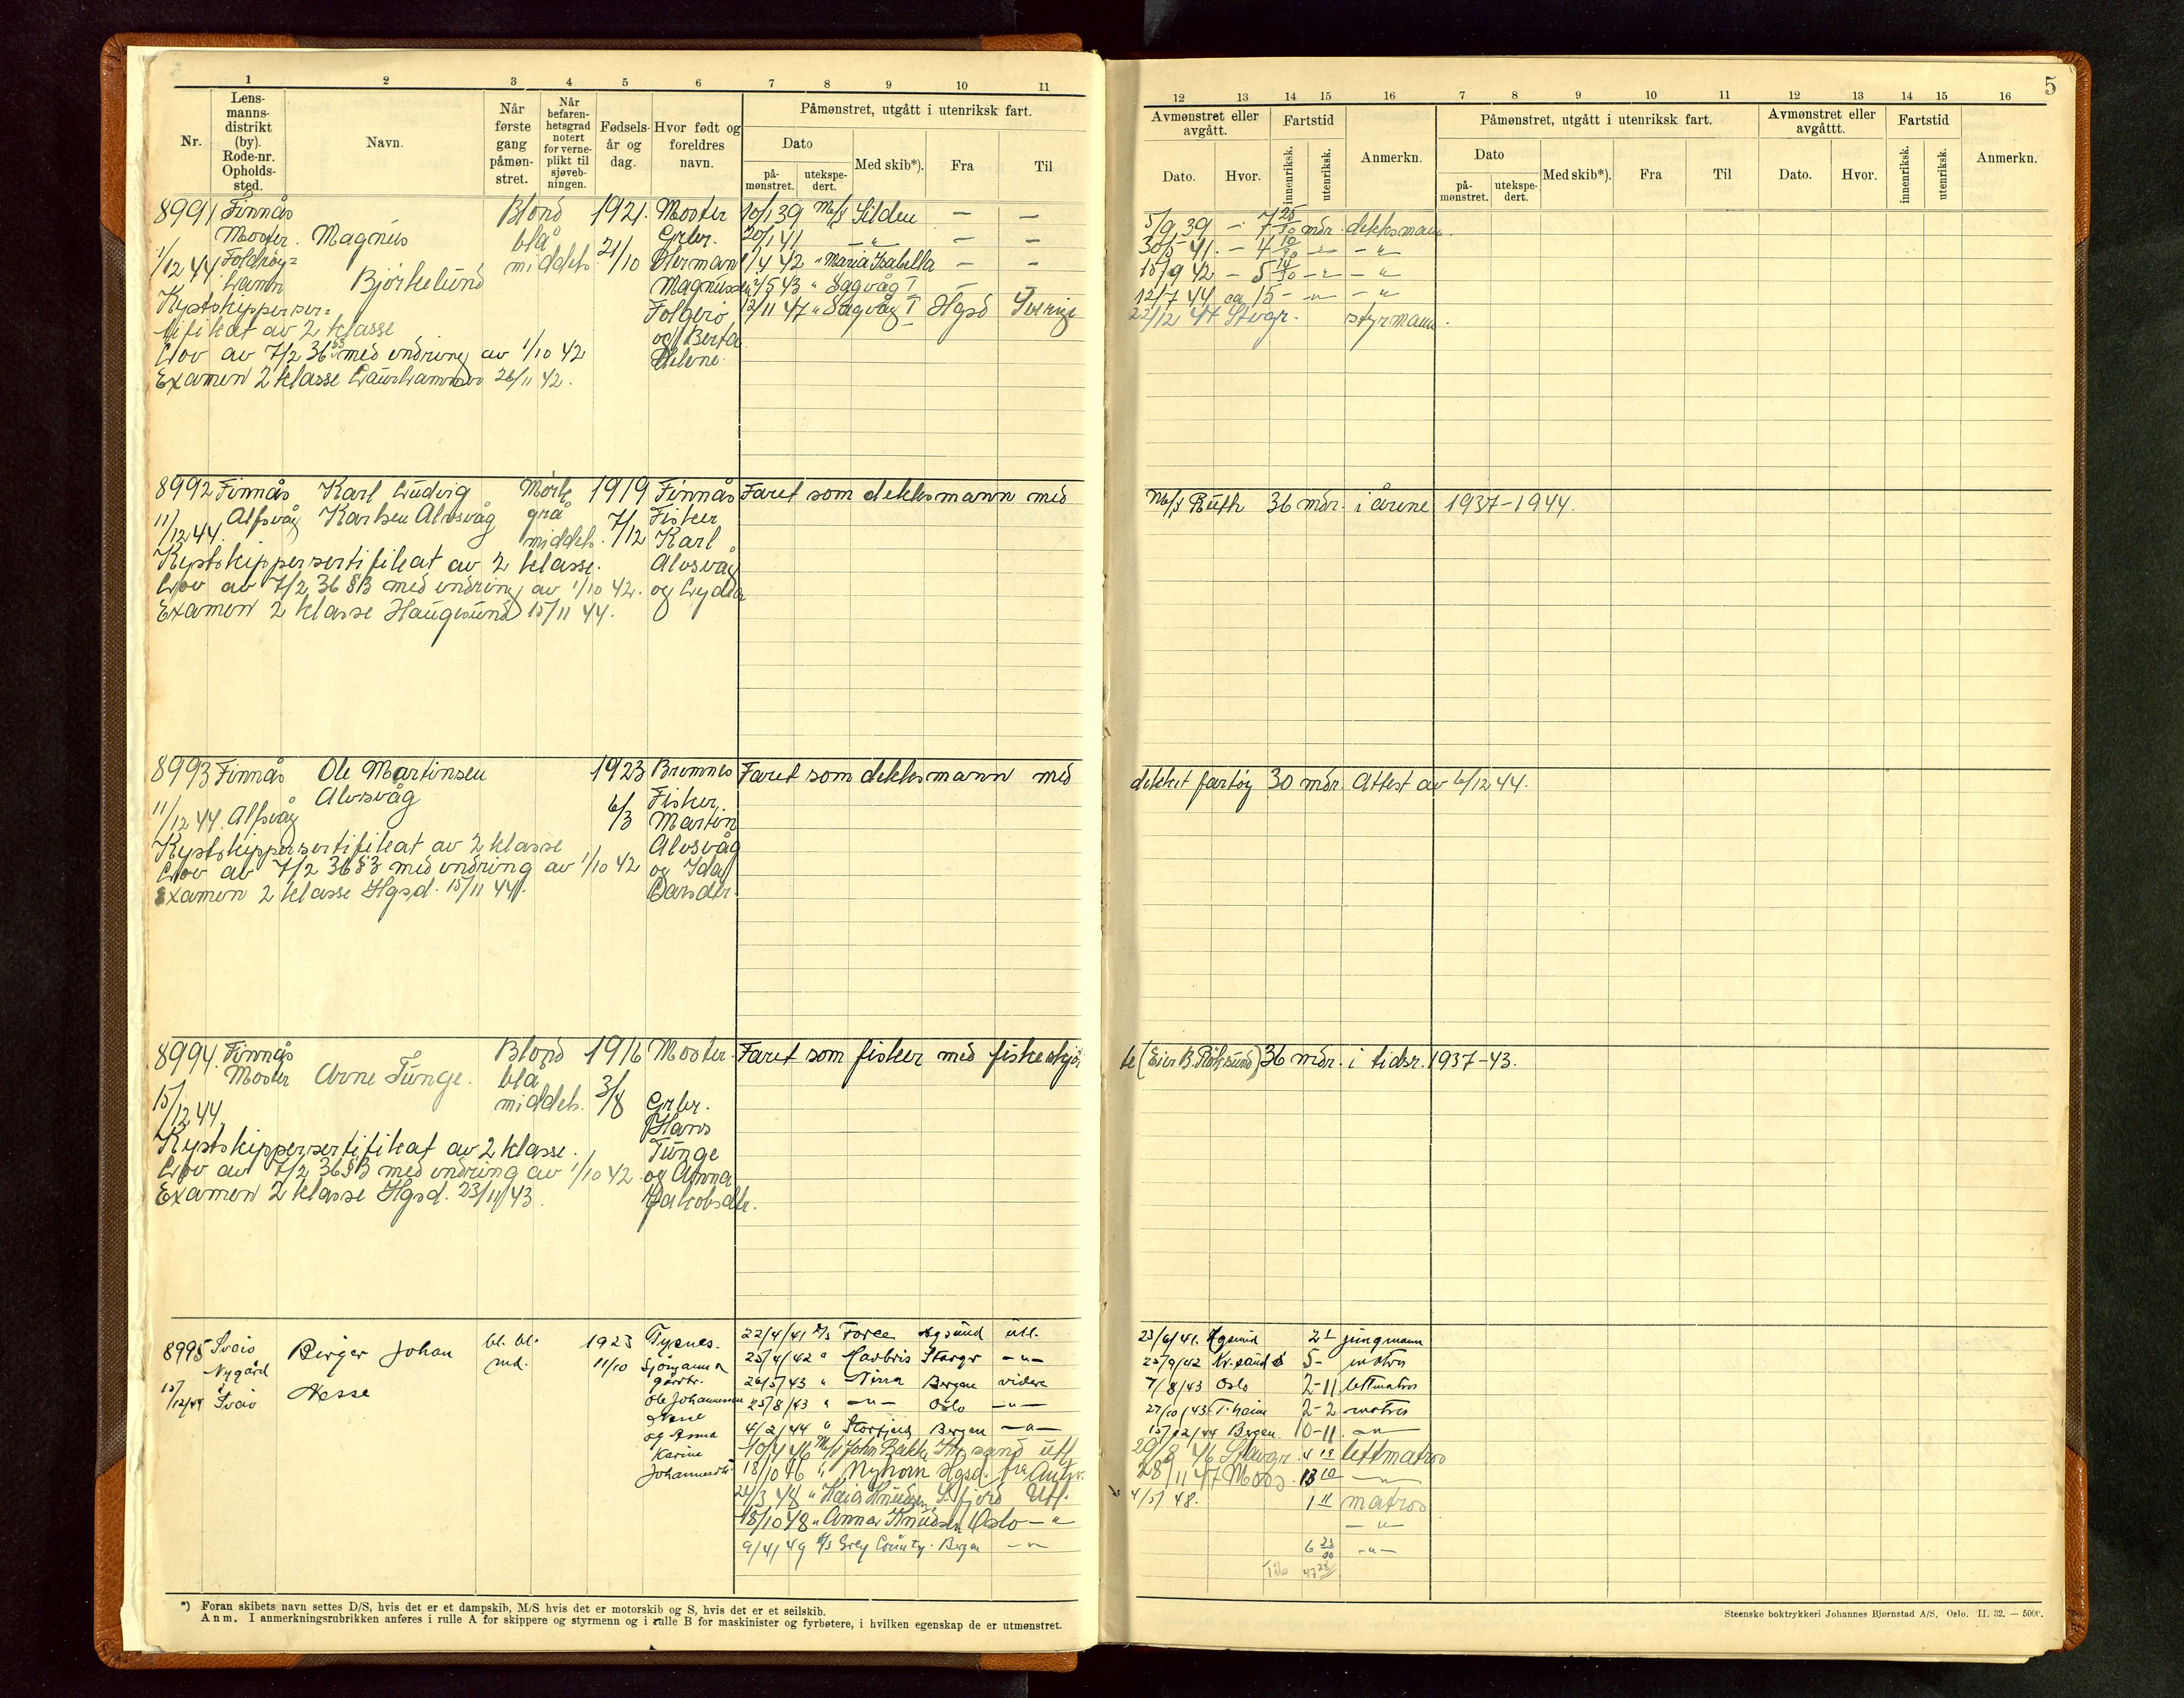 1 2 3 4 5 6 7 8 9 10 11
Nr.
Lens-
manns-
distrikt
(by).
Rode-nr.
Opholds-
sted.
Navn.
Når
første
gang
påmøn-
stret.
Når
befaren-
hetsgrad
notert
for verne-
plikt til
sjøveb-
ningen.
Fødsels-
år og
dag.
Hvor født og
foreldres
navn.
Påmønstret, utgått i utenriksk fart.
Dato
på-
mønstret.
utekspe-
dert.
Med skib*).
Fra
Til
8991 Finnås Blond 1921. Moster 10/1 39 M/S Silden — —
Moster. Magnus blå 21/10 Grbr. 20/1 41 —"— — —
1/12 44 Bjørkelund middels Herman 1/4 42 " Maria Isabella — —
Magnussen 5 43 " Sagvåg I — —
Kystskipperser= 12/11 47 " Sagvåg I Hgsd Sverige
tifikat av 2 klasse og Berta
Lov av 7/2 36 §3 med endring av 1/10 42 Helene.
Examen 2 klasse 26/11 42.
8992 Finnås Karl Ludvig Mørk 1919 Finnås Faret som dekksmann med
11/12 44. Alfsvåg Karlsen Alvsvåg grå 7/12 Fisker
middels. Karl
Kystskippersertifikat av 2 klasse. Alvsvåg
Lov av 7/2 36 §3 med endring av 1/10 42. og Lydia
Examen 2 klasse Haugesund 15/11 44.
8993 Finnås Ole Martinsen 1923 Bremnes Faret som dekksmann med
Alvsvåg 6/3 Fisker.
11/12 44. Alfsvåg Martin
Kystskippersertifikat av 2 klasse Alvsvåg
Lov av 7/2 36 §3 med endring av 1/10 42 og Ida
Examen 2 klasse Hgsd. 15/11 44. Larsdtr.
8994. Finnås Blond 1916 Moster. Faret som fisker med fiskeskjøi
Moster Arne Tunge. blå 3/8
15/12 44. middels. Grbr.
Hans
Kystskippersertifikat av 2 klasse. Tunge
Lov av 7/2 36 §3 med endring av 1/10 42. og Anna
Examen 2 klasse Hgsd. 23/11 43. Jakobsdtr.
8995 Sveio Birger Johan bl. bl. 1923 Tysnes. 22/4/41 Force Hgsund utl.
Nygård md. 11/10 Sjømann 25/4/42 " Havbris Stavgr —"—
15/12/44 Sveio Nesse gårdbr. 26/5/43 " Nina Bergen videre
Ole Johannessen 25/8/43 " —"— Oslo —"—
Nesse 4/2/44 " Storfjeld Bergen —"—
og Anna 10/4 46 M/S John Bakke Kr.sand utl.
Karine 18/10 46 " Nyhorn Hgsd. fra
Johannesdtr 24/3 48 " Kaia Knudsen S.fjord Utl.
18/10 48 " Anna Knudsen Oslo —"
9/4/49 Grey County. Bergen —"—
*) Foran skibets navn settes D/S, hvis det er et dampskib, M/S hvis det er motorskib og S, hvis det er et seilskib.
Anm. I anmerkningsrubrikken anføres i rulle A for skippere og styrmenn og i rulle B for maskinister og fyrbøtere, i hvilken egenskap de er utmønstret.
5
12 13 14 15 16 7 8 9 10 11 12 13 14 15 16
Avmønstret eller
avgått.
Dato.
Hvor.
Fartstid
innenriksk.
utenriksk.
Anmerkn.
Påmønstret, utgått i utenriksk fart.
Dato
på-
mønstret.
utekspe-
dert.
Med skib*).
Fra
Til
Avmønstret eller
avgåttt.
Dato.
Hvor.
Fartstid
innenriksk.
utenriksk.
Anmerkn.
5/9 39 — 7 25/30 mdr. dekksmann.
30/5 41. — 4 10/30 —"— —"—
15/9 42 — 5 14/30 —"— —"—
12/7 44 ca 15 — —"— —"—
22/12 47 Stvgr. styrmann.
M/S Ruth 36 mdr. i årene 1937-1944.
dekket fartøy 30 mdr. Attest av 6/12 44.
te (Eier B. Røksund) 36 mdr. i tidsr. 1937-43.
23/6/41. Hgsund 2 1 jungmann
25/9/42 Kr.sand S 5- matros
7/8/43 Oslo 2-11 lettmatros
27/10/43 T.heim 2-2 matros
15/12/44 Bergen 10-11. —"—
29/8 46 Stavgr. 4 19 lettmatros
28/11 47 Moss. 13 10 —"—
4/5 48. 1 11 matros
—"—
6 23/30 —"—
47 28
Steenske boktrykkeri Johannes Bjørnstad A/S, Oslo. II. 32. — 5000.